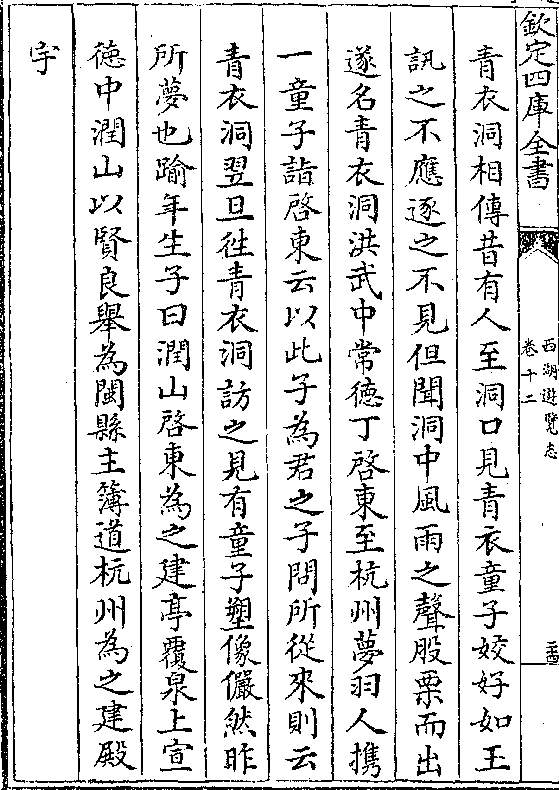 欽定四庫全書
西湖遊覽志
卷十二
青衣洞相傳昔有人至洞口見青衣童子姣好如玉
訊之不應逐之不見但聞洞中風雨之聲股栗而出
遂名青衣洞洪武中常德丁啓東至杭州夢羽人携
一童子詣啓東云以此子為君之子問所從來則云
青衣洞翌旦徃青衣洞訪之見有童子塑像儼然昨
所夢也踰年生子曰潤山啓東為之建亭覆泉上宣
德中潤山以賢良舉為閩縣主簿道杭州為之建殿
宇